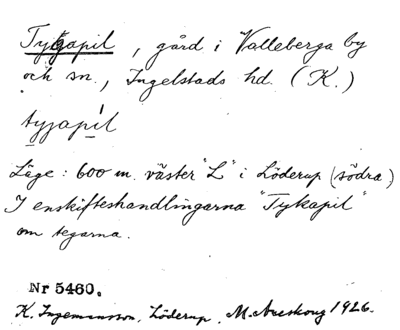 Tygapil, gård i Valleberga by
och sn., Ingelstads hd. (K.)
tyjapil
Läge: 600 m. väster "L" i Löderup (södra)
I enskifteshandlingarna "Tykapil"
om tegarna.
Nr 5460.
K. Ingemansson, Löderup. M. Areskoug 1926.